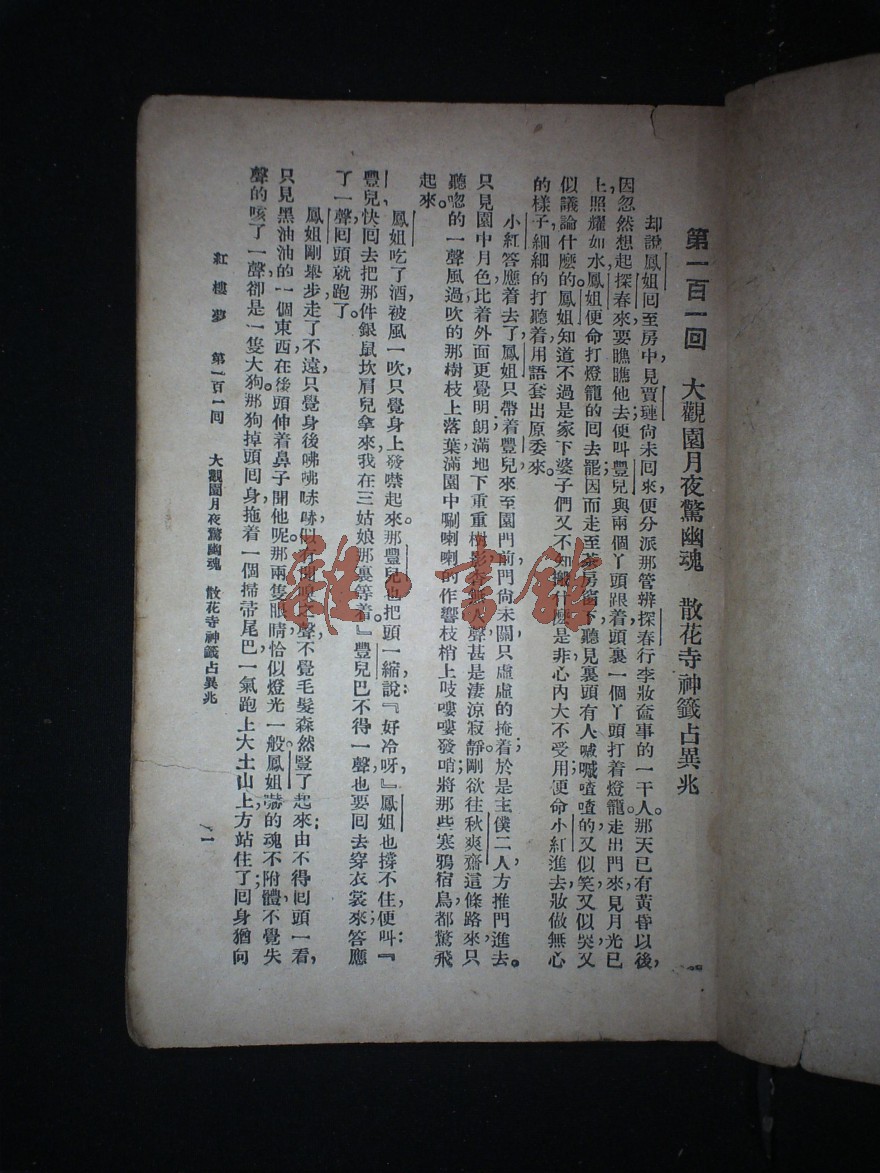 第一百一回　大觀園月夜驚幽魂　散花寺神籤占異兆
却說鳳姐回至房中,見賈璉尙未回來,便分派那管辨探春行李妝奩事的一干人。那天已有黃昏以後,
因忽然想起探春來,要瞧瞧他去,便叫豐兒與兩個丫頭跟着,頭裏一個丫頭打着燈籠。走出門來,見月光已
上,照耀如水,鳳姐便命打燈籠的回去罷;因而走至茶房窗下,聽見裏頭有人嘁嘁喳喳的,又似笑,又似哭,又
似議論什麽的。鳳姐知道不過是家下婆子們又不知搬什麽是非,心內大不受用,便命小紅進去,妝做無心
的樣子,細細的打聽着,用語套出原委來。
小紅答應着去了,鳳姐只帶着豐兒來至園門前,門尙未關,只虛虛的掩着。於是主僕二人方推門進去。
只見園中月色比着外面更覺明朗,滿地下重重樹影,杳無人聲,甚是淒涼寂靜。剛欲往秋爽齋這條路來,只
聽唿的一聲風過,吹的那樹枝上落葉滿園中唰喇喇的作響,枝梢上吱嘍嘍發哨,將那些寒鴉宿鳥都驚飛
起來。
鳳姐吃了酒,被風一吹,只覺身上發噤起來。那豐兒也把頭一縮,說:『好冷呀!』鳳姐也撐不住,便叫:『
豐兒快回去把那件銀鼠坎肩兒拿來,我在三姑娘那裏等着。』豐兒巴不得一聲,也要回去穿衣裳來,答應
了一聲,回頭就跑了。
鳳姐剛舉步走了不遠,只覺身後咈咈哧哧,似有聞嗅之聲,不覺毛髮森然豎了起來;由不得回頭一看,
只見黑油油的一個東西在後頭伸着鼻子聞他呢,那兩隻眼睛恰似燈光一般。鳳姐嚇的魂不附體,不覺失
聲的咳了一聲,卻是一隻大狗。那狗掉頭回身,拖着一個掃帚尾巴,一氣跑上大土山上,方站住了,回身猶向
紅樓夢　第一百一回　大觀園月夜驚幽魂　散花寺神籤占異兆
一